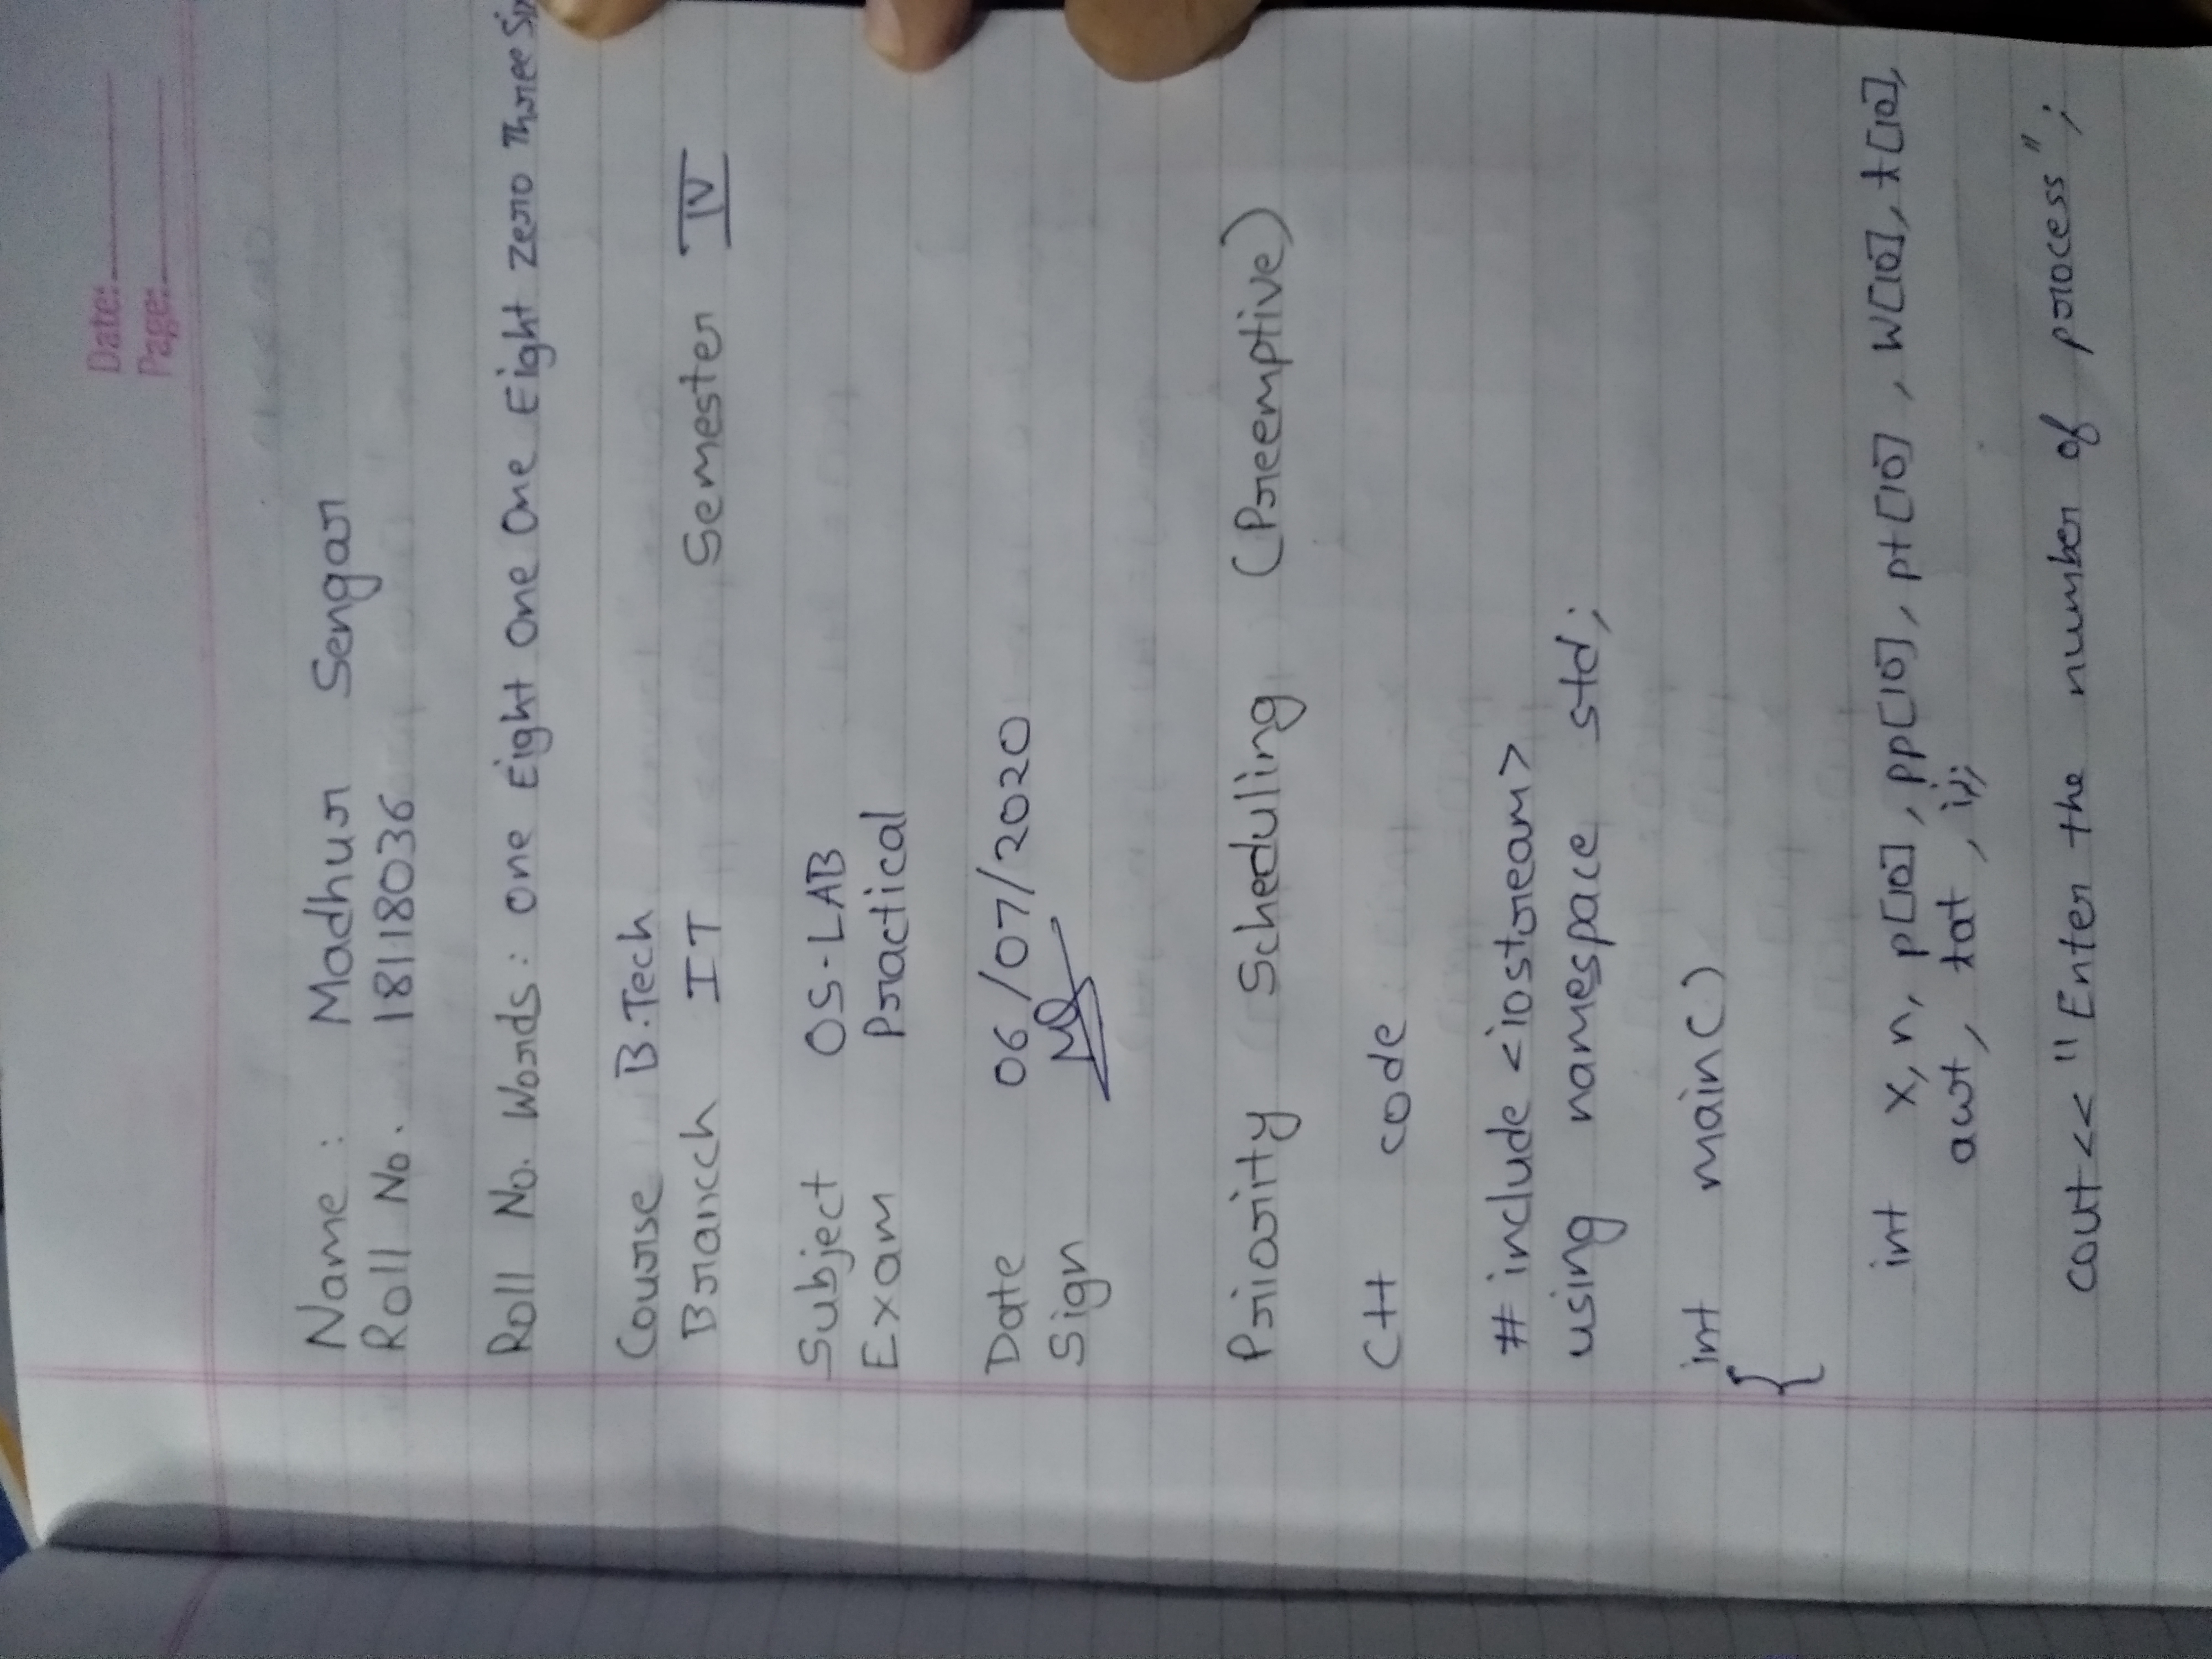 Date:
Page:
Name : Madhur Sengar
Roll No. 18118036
Roll No. Words : One Eight One One Eight Zero Three Six
Course B.Tech
Brancch IT Semester IV
Subject OS-LAB
Exam Practical
Date 06/07/2020
Sign
Priority Scheduling (Preemptive)
C++ code
# include <iostream>
using namespace std;
int main()
{
int x, n, p[10], pp[10], pt[10], w[10], t[10],
awt, tat, i;
cout << "Enter the number of process";